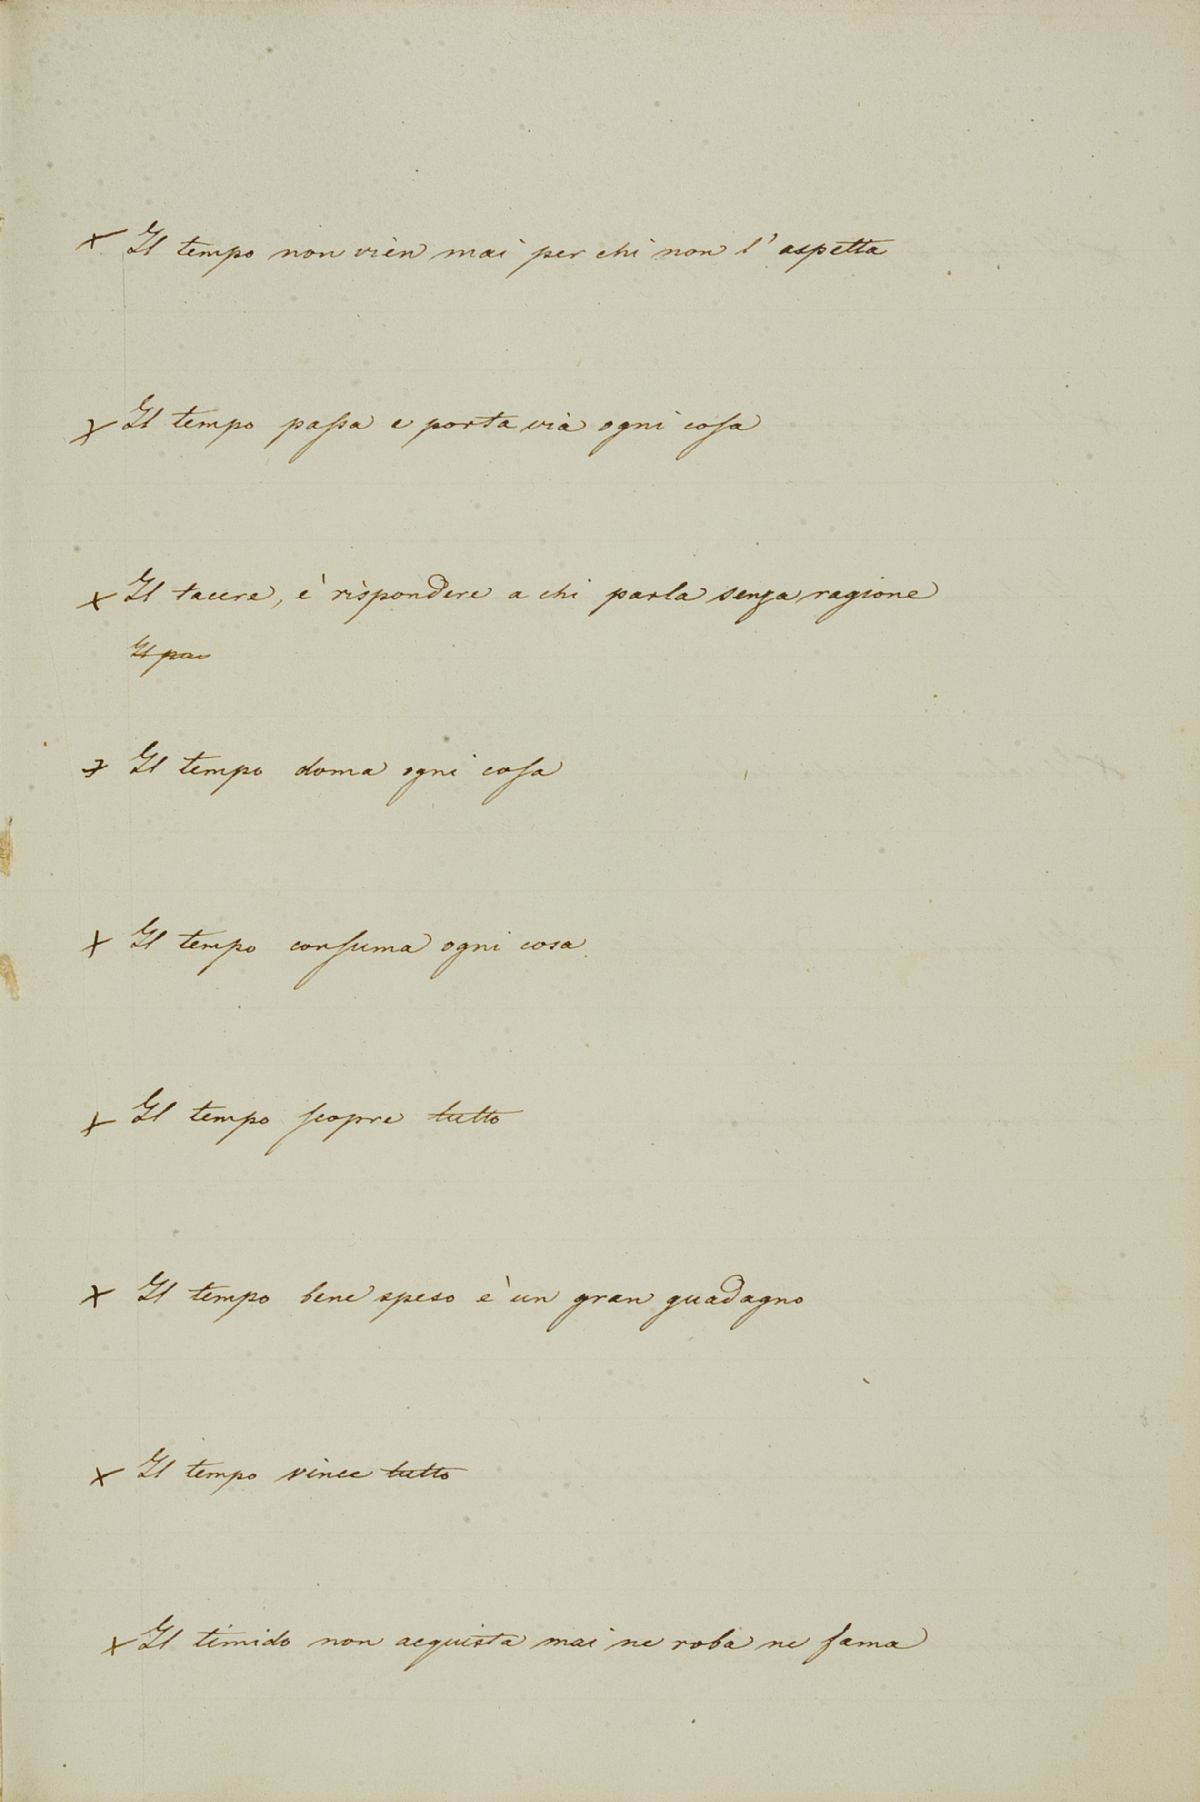 × Il tempo non vien mai per chi non l'aspetta
× Il tempo passa e porta via ogni cosa
× Il tacere, è rispondere a chi parla senza ragione
Il pa
× Il tempo doma ogni cosa
× Il tempo consuma ogni cosa
× Il tempo scopre tutto
× Il tempo bene speso è un gran guadagno
× Il tempo vince tutto
× Il timido non acquista mai ne roba ne fama